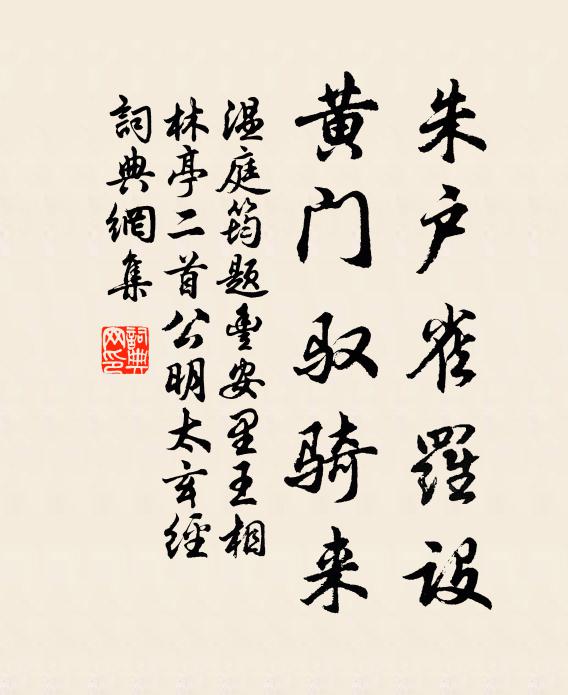 朱户雀羅設
黄门驭骑来
温庭筠题豊安里王相
林亭二首公明太玄經
詞典網集
詞典网印